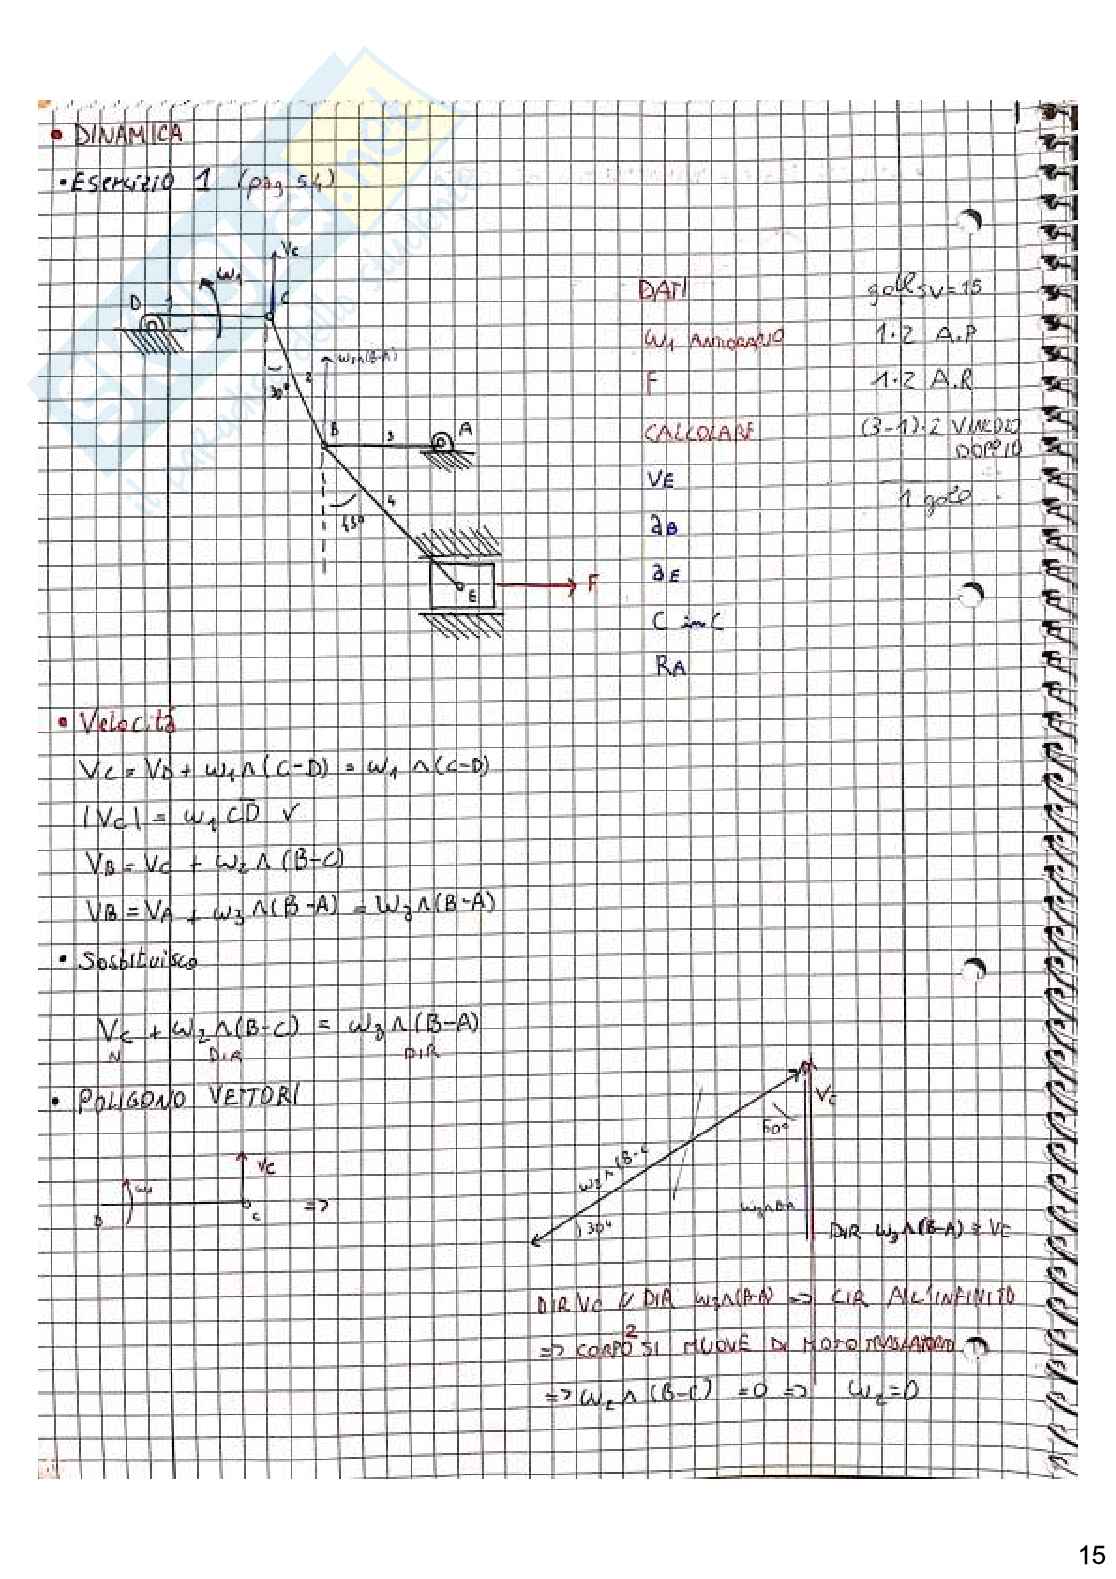 • DINAMICA
• Esercizio 1 (pag 54)
Vc
ω1
D 1 C
30° 2
B 3 A
45° 4
E F
DATI
ω1 ANTIORARIO
F
CALCOLARE
VE
aB
aE
C in C
RA
gdl = 15
1·2 A.P
1·2 A.R
(3-1)·2 VINCOLO
DOPPIO
1 gdl
• Velocità
Vc = VD + ω1 ∧ (C-D) = ω1 ∧ (C-D)
|Vc| = ω1 CD √
VB = Vc + ω2 ∧ (B-C)
VB = VA + ω3 ∧ (B-A) = ω3 ∧ (B-A)
• Sostituisco
Vc + ω2 ∧ (B-C) = ω3 ∧ (B-A)
V DIR DIR
• POLIGONO VETTORI
ω1 Vc
D C =>
ω2 ∧ (B-C
60° Vc
30°
DIR ω3 ∧ (B-A) = VE
DIR VC // DIR ω3 ∧ (B-A) => CIR ALL'INFINITO
=> CORPO 2 SI MUOVE DI MOTO TRASLATORIO
=> ω2 ∧ (B-C) = 0 => ω2 = 0
15